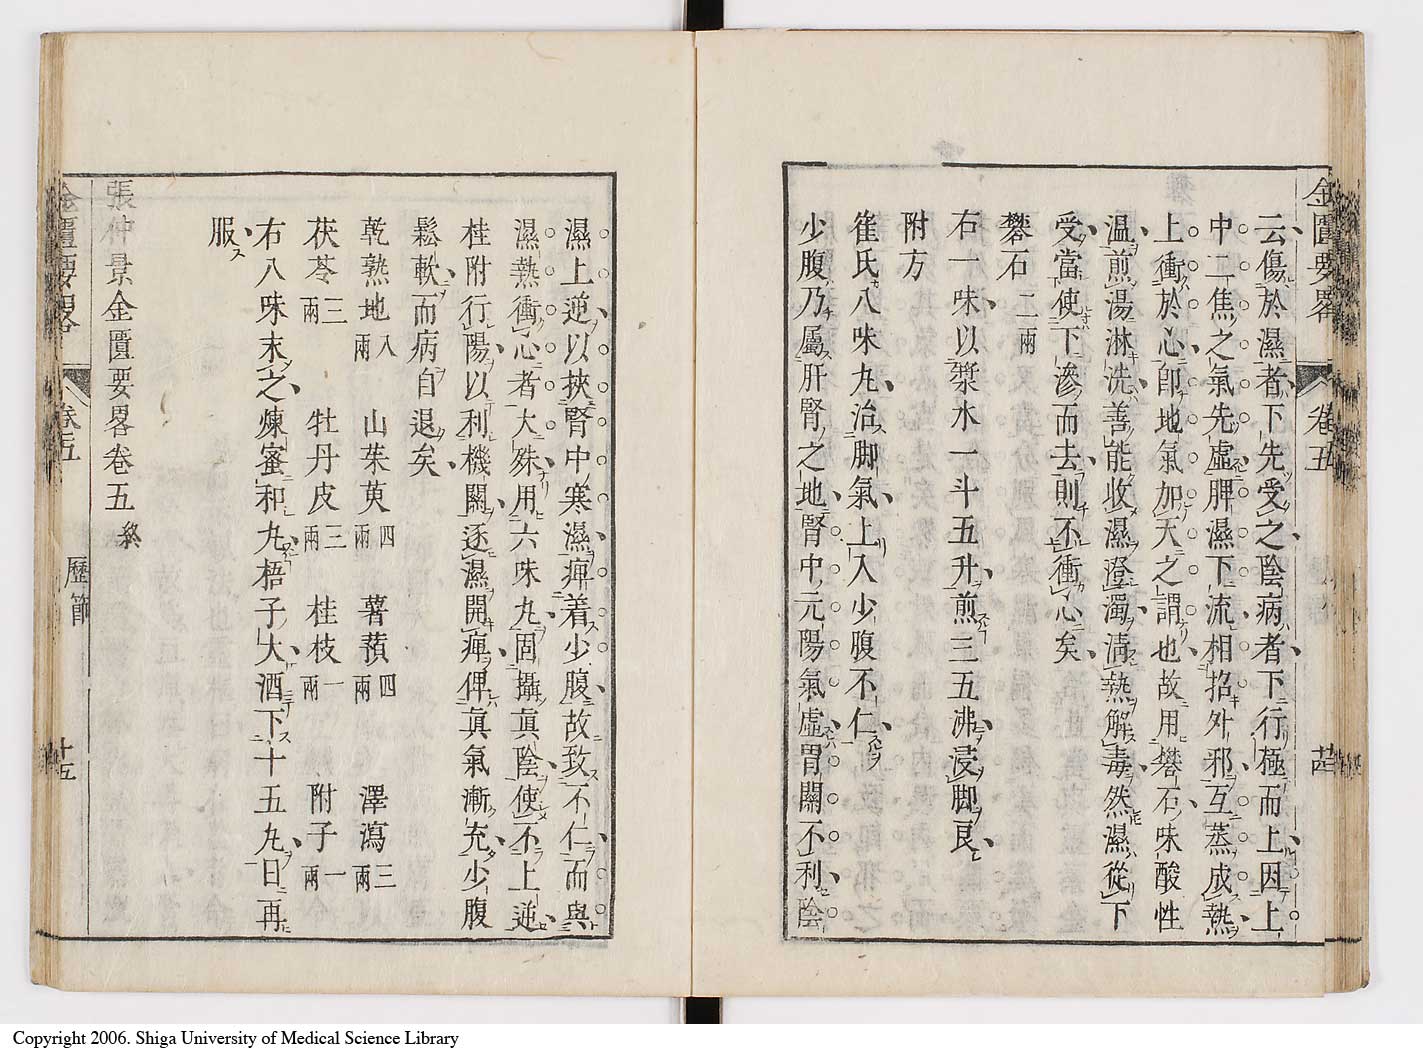 金匱要畧
卷五
云傷於濕者下先受之陰病者下行極而上因上
中二焦之氣先虛脾濕下流相招外邪互蒸成熱
上衝於心卽地氣加天之謂也故用礬石味酸性
温煎湯淋洗善能收濕澄濁淸熱解毒然濕從下
受當使下滲而去則不衝心矣
礬石二兩
右一味以漿水一斗五升煎三五沸浸脚良
附方
崔氏八味丸治脚氣上入少腹不仁
少腹乃屬肝腎之地腎中元陽氣虛胃關不利陰
濕上逆以挾腎中寒濕痺着少腹故致不仁而與
濕熱衝心者大殊用六味丸固攝眞陰使不上逆
桂附行陽以利機關逐濕開痺俾眞氣漸充少腹
鬆軟而病自退矣
乾熟地八兩 山茱萸四兩 薯蕷四兩 澤瀉三兩
茯苓三兩 牡丹皮三兩 桂枝一兩 附子一兩
右八味末之煉蜜和丸梧子大酒下十五丸日再
服
張仲景金匱要畧卷五終
金匱要畧
卷五
歷節
十五
Copyright 2006. Shiga University of Medical Science Library